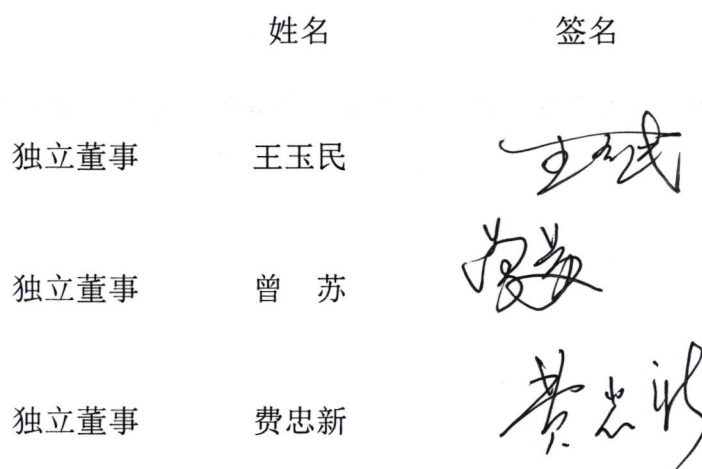 姓名 签名
独立董事 王玉民
独立董事 曾 苏
独立董事 费忠新 费忠新